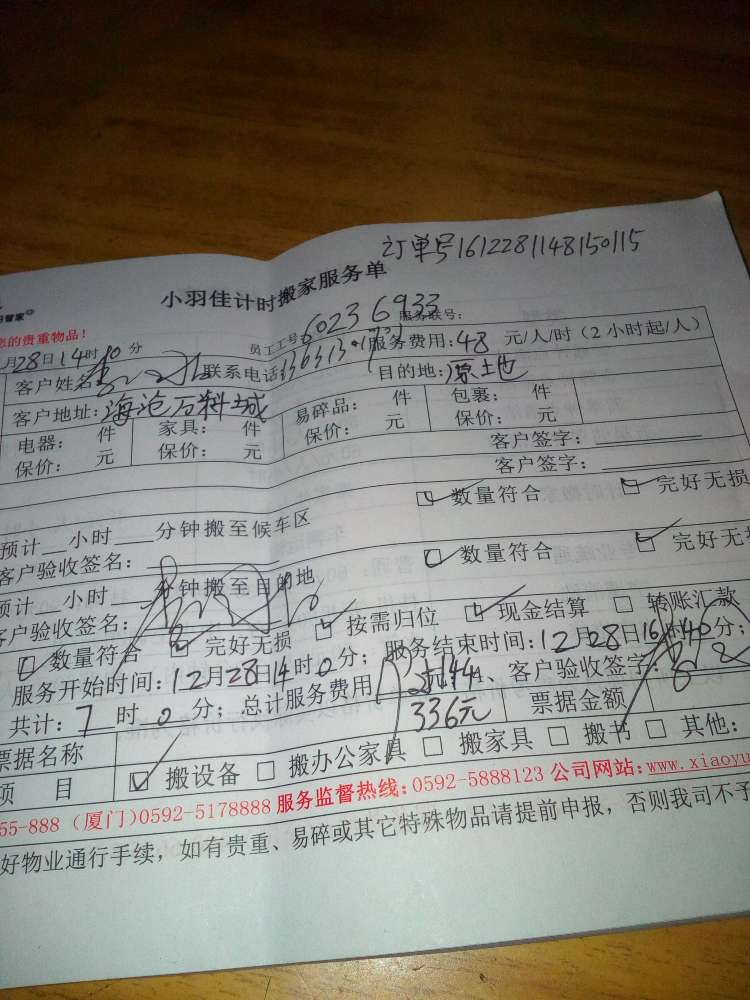 订单号1612281148150115
小羽佳计时搬家服务单
您的贵重物品！
月28日14时 分 员工工号60236933 服务联号：
客户姓名 联系电话 服务费用：48 元/人/时（2小时起/人）
客户地址：海沧万科城 目的地：原土地
电器： 件 家具： 件 易碎品： 件 包裹： 件
保价： 元 保价： 元 保价： 元 保价： 元
客户签字：
客户签字：
预计 小时 分钟搬至候车区 数量符合 完好无损
客户验收签名：
预计 小时 分钟搬至目的地 数量符合 完好无损
客户验收签名：
数量符合 完好无损 按需归位 现金结算 转账汇款
服务开始时间：12月28日14时0分；服务结束时间：12月28日16时40分；
共计：7时0分；总计服务费用 336元 客户验收签字：
票据名称 票据金额
项 目 搬设备 搬办公家具 搬家具 搬书 其他：
55-888（厦门）0592-5178888 服务监督热线：0592-5888123 公司网站：www.xiaoyu
好物业通行手续，如有贵重、易碎或其它特殊物品请提前申报，否则我司不予